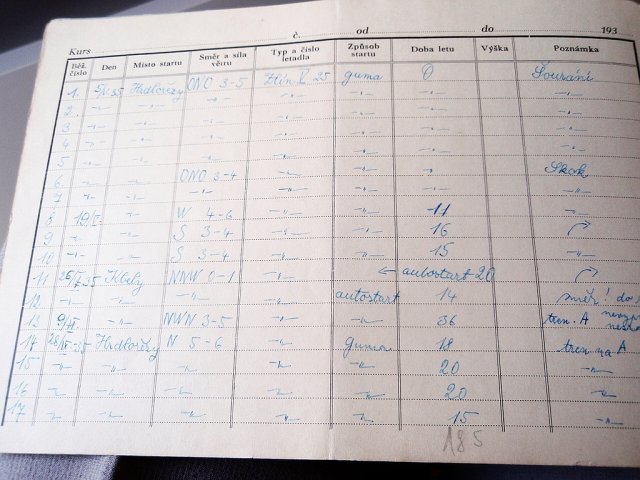 Kurs č. od do 193
Běž. číslo Den Místo startu Směr a síla větru Typ a číslo letadla Způsob startu Doba letu Výška Poznámka
1. Hrdlořezy ONO 3-5 Zlin 25 guma 0 Šourání
2. -"- -"- -"- -"- -"- -"- -"-
3 -"- -"- -"- -"- -"- -"-
4 -"- -"- -"- -"- -"- -"-
5 -"- -"- -"- -"- -"- -"-
6 -"- -"- ONO 3-4 -"- -"- Skok
7 -"- -"- -"- -"- -"- -"- -"-
8 -"- W 4-6 -"- -"- 11 -"-
9 -"- -"- S 3-4 -"- -"- 16
10 -"- -"- S 3-4 -"- -"- 15 -"-
11 Kbely NNW 0-1 -"- ← autostart 20
12 -"- -"- -"- autostart 14 směr! do
13 -"- NWN 3-5 -"- -"- 36 tren. A
14 Hrdlořezy N 5-6 -"- 18 tren na A
15 -"- -"- -"- -"- -"- 20 -"-
16 -"- -"- -"- -"- -"- 20 -"-
17 -"- -"- -"- -"- -"- 15 -"-
185